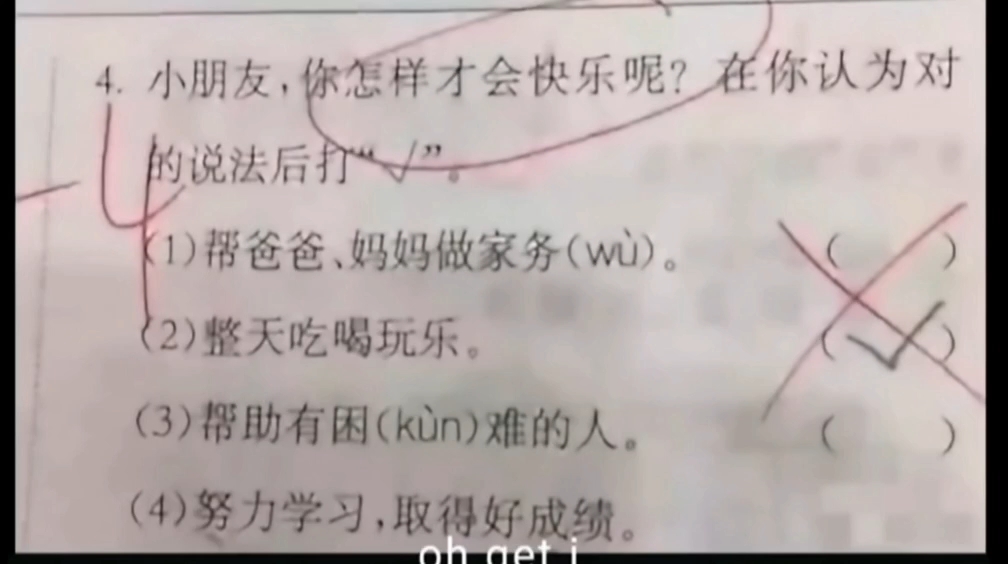 4. 小朋友，你怎样才会快乐呢？在你认为对
的说法后打“√”。
(1)帮爸爸、妈妈做家务(wù)。 ( )
(2)整天吃喝玩乐。 (✓)
(3)帮助有困(kùn)难的人。 ( )
(4)努力学习，取得好成绩。
oh get i